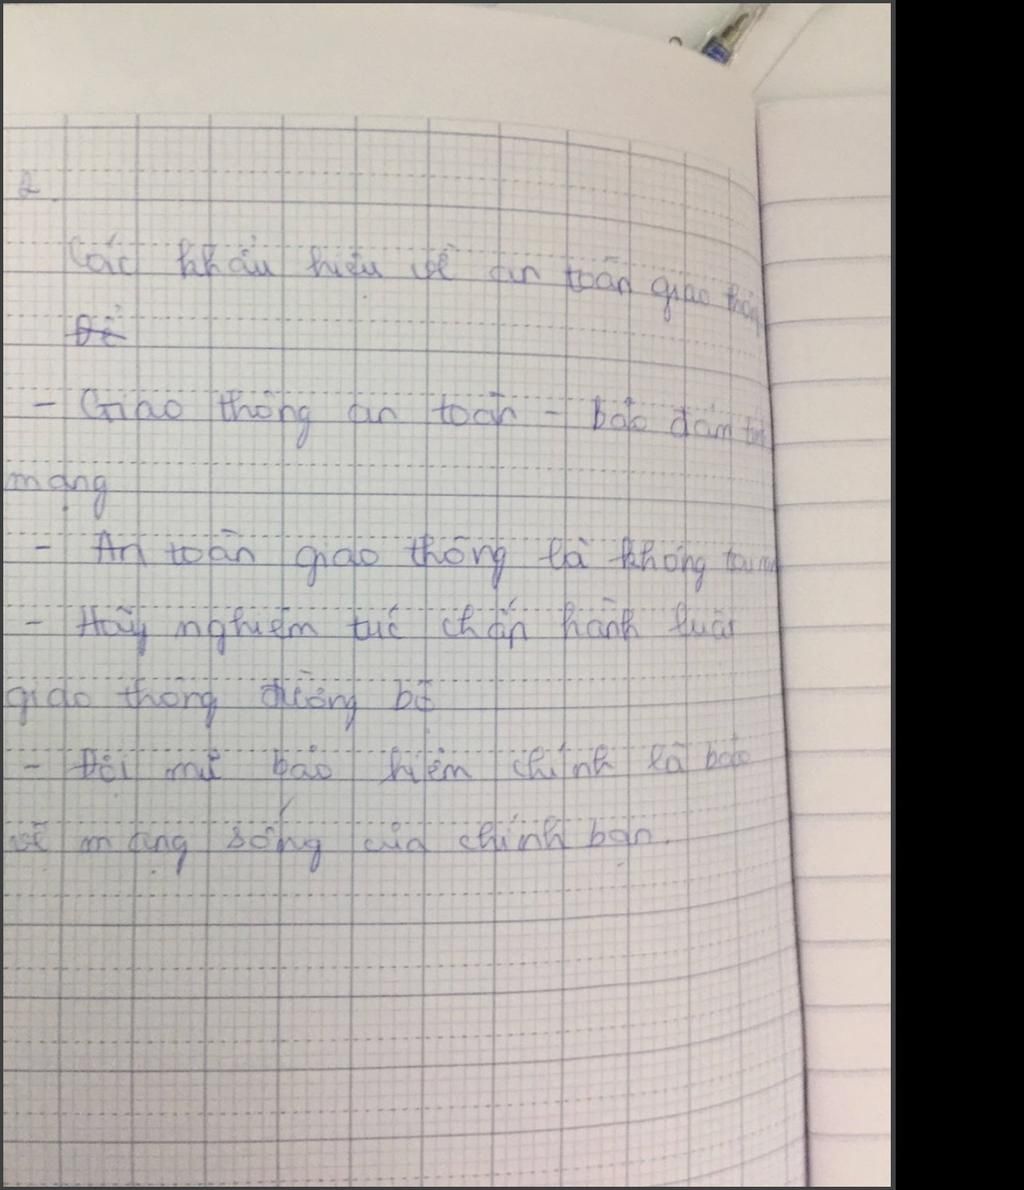 2.
Các khẩu hiệu về an toàn giao thông
Để
- Giao thông an toàn - bảo đảm tính
mạng
- An toàn giao thông là không tai nạn
- Hãy nghiêm túc chấp hành luật
giao thông đường bộ
- Đội mũ bảo hiểm chính là bảo
vệ mạng sống của chính bạn.